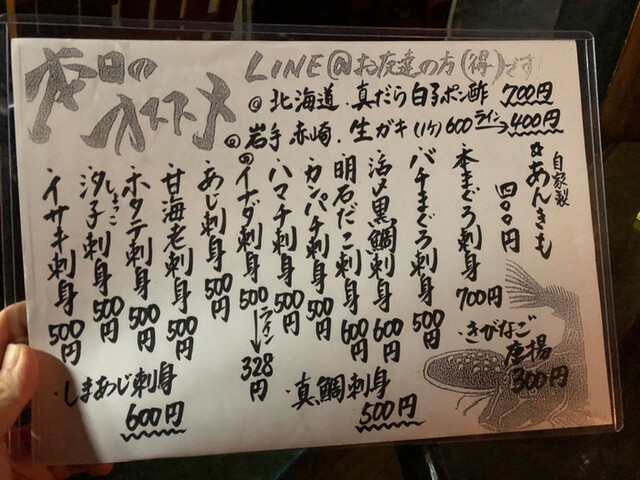 本日の
オススメ
LINE@お友達の方(得)です!
◎北海道.真だら白子ポン酢 700円
◎岩手 赤崎.生ガキ(1ケ)600ライン→400円
自家製
あんきも
四〇〇円
・本まぐろ刺身 700円
・バチまぐろ刺身 500円
・活〆黒鯛刺身 600円
・明石だこ刺身 600円
・カンパチ刺身 500円
・ハマチ刺身 500円
・イナダ刺身 500→ライン 328円
・あじ刺身 500円
・甘海老刺身 500円
・ホタテ刺身 500円
・汐子刺身 500円
しょっこ
・イサキ刺身 500円
・きびなご
唐揚
300円
・しまあじ刺身
600円
・真鯛刺身
500円